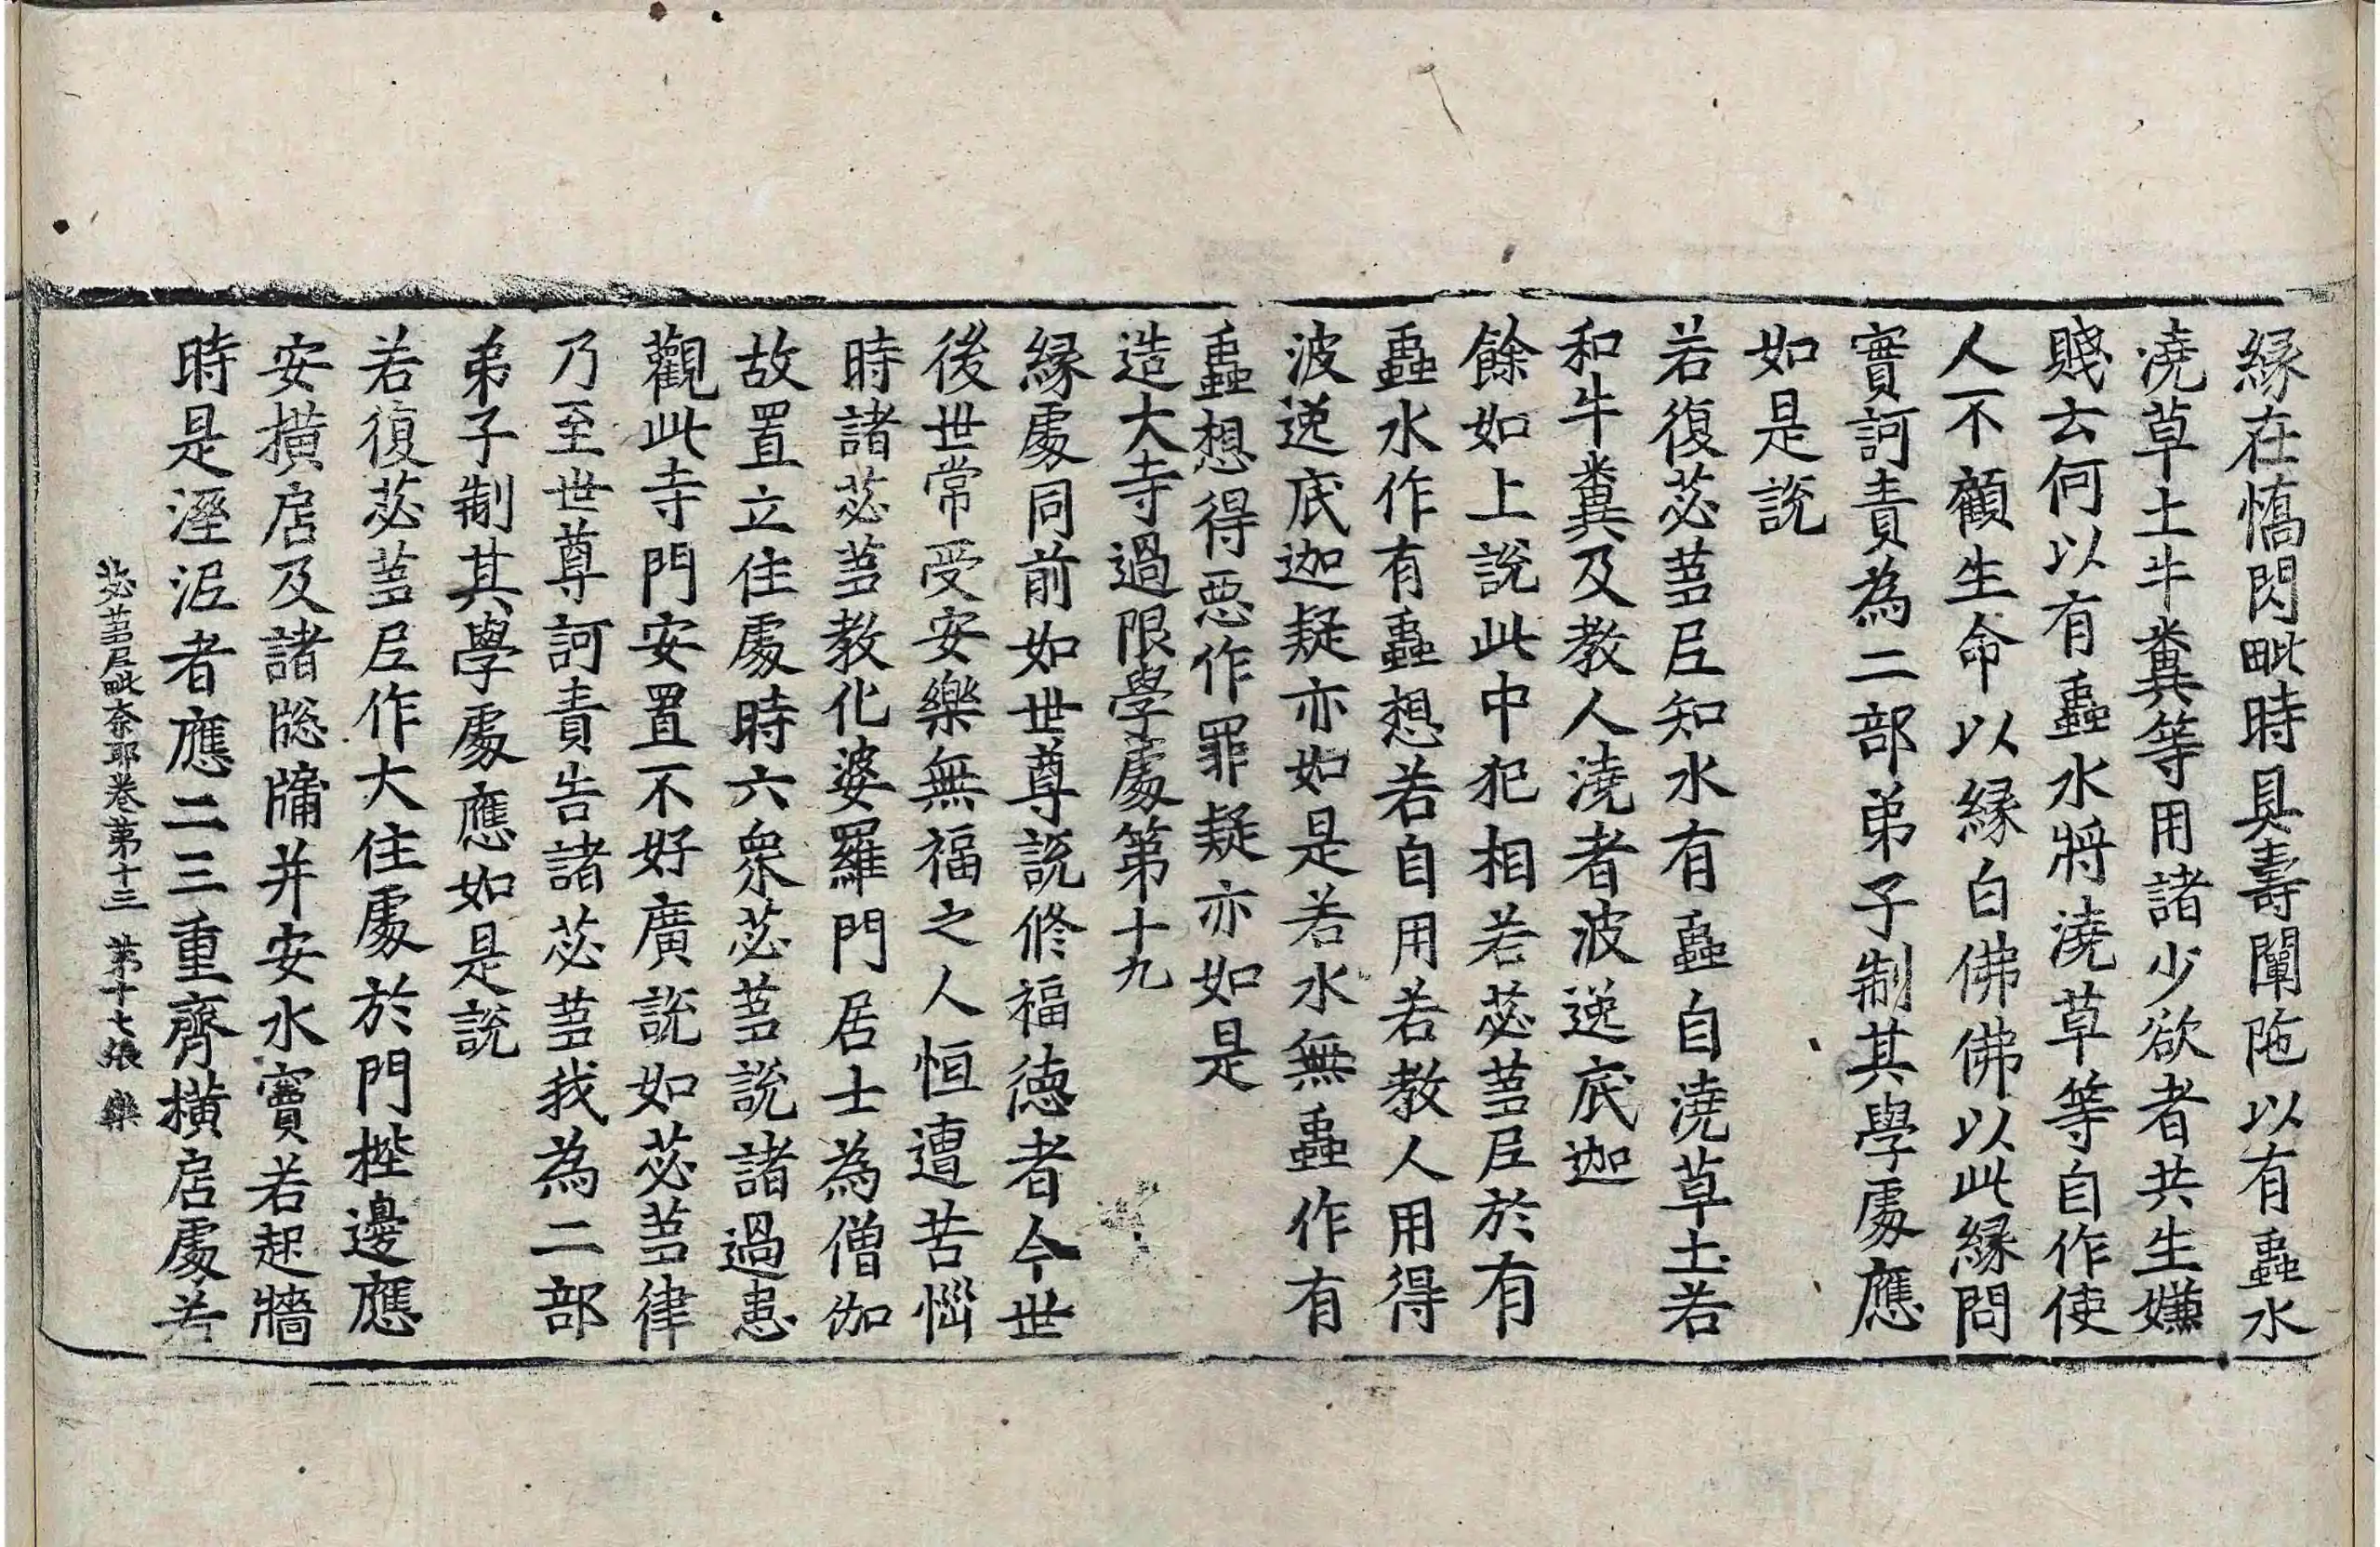 緣在憍閃毗時具壽闡陁以有蟲水
澆草土牛糞等用諸少欲者共生嫌
賤云何以有蟲水將澆草等自作使
人不顧生命以緣白佛佛以此緣問
實訶責為二部弟子制其學處應
如是說
若復苾蒭尼知水有蟲自澆草土若
和牛糞及教人澆者波逸底迦
餘如上說此中犯相若苾蒭尼於有
蟲水作有蟲想若自用若教人用得
波逸底迦疑亦如是若水無蟲作有
蟲想得惡作罪疑亦如是
造大寺過限學處第十九
緣處同前如世尊說修福德者今世
後世常受安樂無福之人恒遭苦惱
時諸苾蒭教化婆羅門居士為僧伽
故置立住處時六眾苾蒭說諸過患
觀此寺門安置不好廣說如苾蒭律
乃至世尊訶責告諸苾蒭我為二部
弟子制其學處應如是說
若復苾蒭尼作大住處於門梐邊應
安撗扂及諸牎牗并安水竇若起牆
時是溼泥者應二三重齊撗扂處若
苾蒭尼毗奈耶卷第十三 第十七張 樂